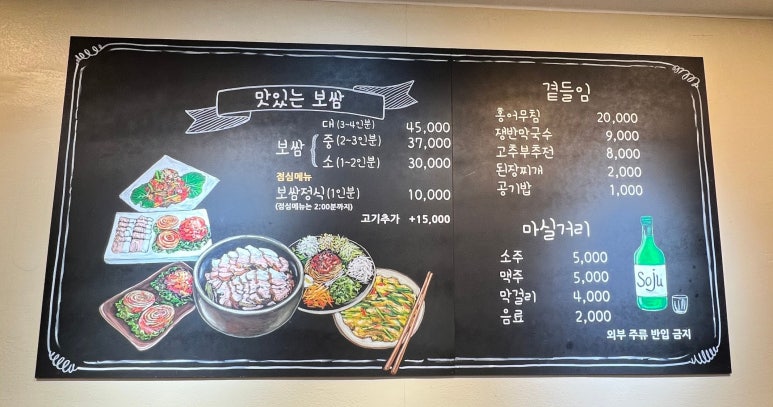 맛있는 보쌈
보쌈
대 (3~4인분) 45,000
중 (2~3인분) 37,000
소 (1~2인분) 30,000
점심메뉴
보쌈정식 (1인분) 10,000
(점심메뉴는 2:00분까지)
고기추가 +15,000
곁들임
홍어무침 20,000
쟁반막국수 9,000
고추부추전 8,000
된장찌개 2,000
공기밥 1,000
마실거리
소주 5,000
맥주 5,000
막걸리 4,000
음료 2,000
Soju
외부 주류 반입 금지